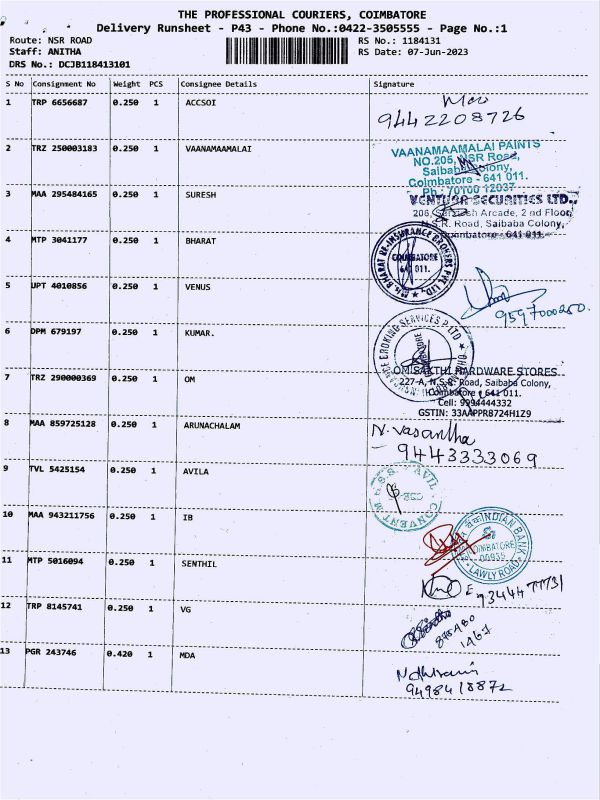 THE PROFESSIONAL COURIERS, COIMBATORE
Delivery Runsheet - P43 - Phone No.:0422-3505555 - Page No.:1
Route: NSR ROAD RS No.: 1184131
Staff: ANITHA RS Date: 07-Jun-2023
DRS No.: DCJB118413101
S No Consignment No Weight PCS Consignee Details Signature
1 TRP 6656687 0.250 1 ACCSOI
9442208726
2 TRZ 250003183 0.250 1 VAANAMAAMALAI
VAANAMAAMALAI PAINTS
NO.205, NSR Road,
Saibaba Colony,
Coimbatore - 641 011.
Ph : 70100 12037
3 MAA 295484165 0.250 1 SURESH
VENTURA SECURITIES LTD.,
Arcade, 2 nd Floor,
N.S.R. Road, Saibaba Colony,
Coimbatore - 641 011.
4 MTP 3041177 0.250 1 BHARAT
BHARAT RE-INSURANCE BROKERS PVT. LTD.,
COIMBATORE
641 011.
5 UPT 4010856 0.250 1 VENUS
9597000250.
6 DPM 679197 0.250 1 KUMAR.
BROKING SERVICES P LTD
7 TRZ 290000369 0.250 1 OM
OM SAKTHI HARDWARE STORES
227-A, N.S.R. Road, Saibaba Colony,
Coimbatore - 641 011.
Cell: 9994444332
GSTIN: 33AAPPR8724H1Z9
8 MAA 859725128 0.250 1 ARUNACHALAM
N. Vasantha
9443333069
9 TVL 5425154 0.250 1 AVILA
CONVENT
10 MAA 943211756 0.250 1 IB
INDIAN BANK
COIMBATORE
00935
LAWLY ROAD
11 MTP 5016094 0.250 1 SENTHIL
12 TRP 8145741 0.250 1 VG
13 PGR 243746 0.420 1 MDA
9498418872